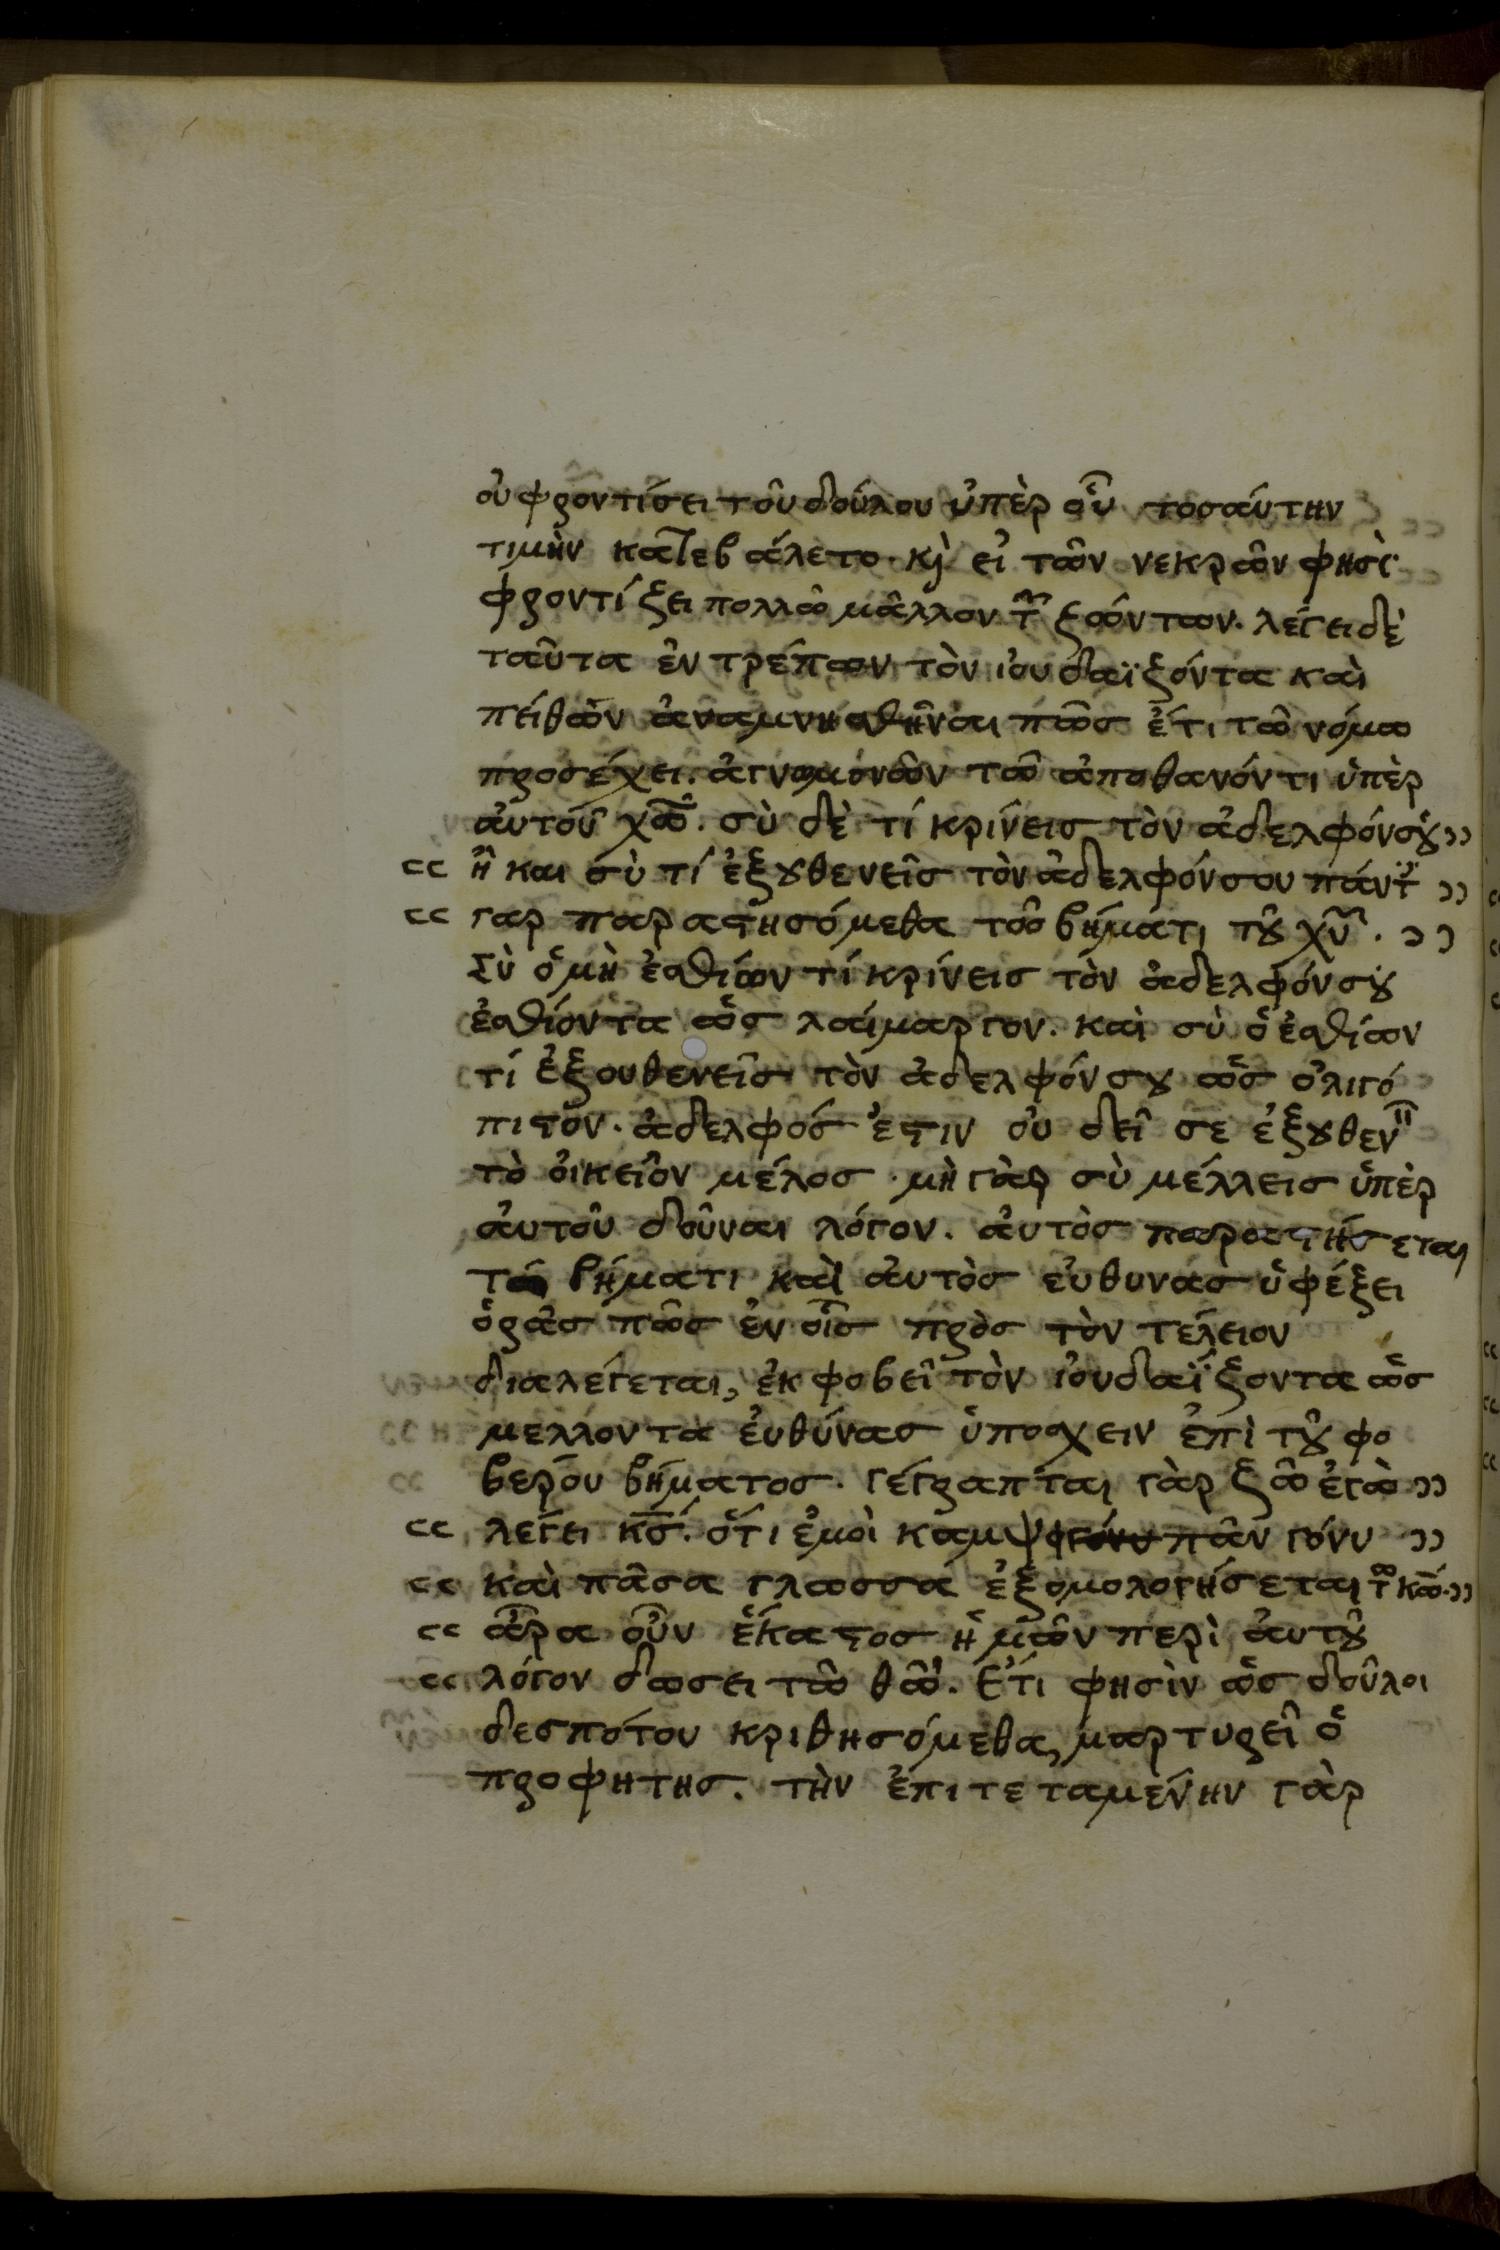 οὐ φροντίσει τοῦ δούλου ὑπὲρ οὗ τοσαύτην
τιμὴν κατεβάλετο. κ̀ εἰ τῶν νεκρῶν φησὶ
φροντίζει πολλῶ μᾶλλον τῶν ζώντων. λέγει δὲ
ταῦτα ἐντρέπων τὸν ἰουδαΐζόντα καὶ
πείθων ἀναμνησθῆναι πῶς ἔτι τῶ νόμω
προσέχει. ἀγνωμονῶν τῶ ἀποθανόντι ὑπὲρ
αὐτοῦ χω̅. σὺ δὲ τί κρίνεις τὸν ἀδελφόνσȣ ››
‹‹ ἢ και σὺ τί ἐξȣθενεῖς τὸν ἀδελφόνσου πάντ̈ ››
‹‹ γαρ παραϛησόμεθα τῶ βήματι τȣ͂ χυ̅. ››
Σὺ ὁ μὴ ἐσθίων τί κρίνεις τὸν ἀδελφόνσȣ
ἐσθίοντα ὡς λαίμαργον. καὶ σὺ ὁ ἐσθίων
τί ἐξουθενεῖς τὸν ἀδελφόνσȣ ὡς ὀλιγό
πιϛον. ἀδελφός ἐϛιν οὐ δεῖ σε ἐξȣθεν
τὸ οἰκεῖον μέλος. μὴ γὰρ σὺ μέλλεις ὑπὲρ
αὐτοῦ δοῦναι λόγον. αὐτὸς παραϛήσεται
τῶ βήματι καὶ αὐτὸς εὐθυνας ὑφέξει
ὁρᾶς πῶς ἐν οἷς πρὸς τὸν τέλειον
διαλέγεται, ἐκφοβεῖ τὸν ἰουδαΐζοντα ὡς
μελλοντα εὐθύνας ὑποσχειν ἐπὶ τȣ͂ φο
βερόυ βήματος. γέγραπται γὰρ ζῶ ἐγὼ ››
‹‹ λέγει κς̅. ὅτι ἐμοὶ καμψει πᾶν γόνυ ››
‹‹ καὶ πᾶσα γλωσσά ἐξομολογήσεται τῶ κω̅. ››
‹‹ ἆρα οὖν ἕκαϛος ἡμῶν περὶ αὐτȣ͂
‹‹ λόγον δωσει τῶ θω̅. Ἔτι φησὶν ὡς δοῦλοι
δεσπότου κριθησόμεθα, μαρτυρεῖ ὁ
προφητης. τὴν ἐπιτεταμένην γὰρ